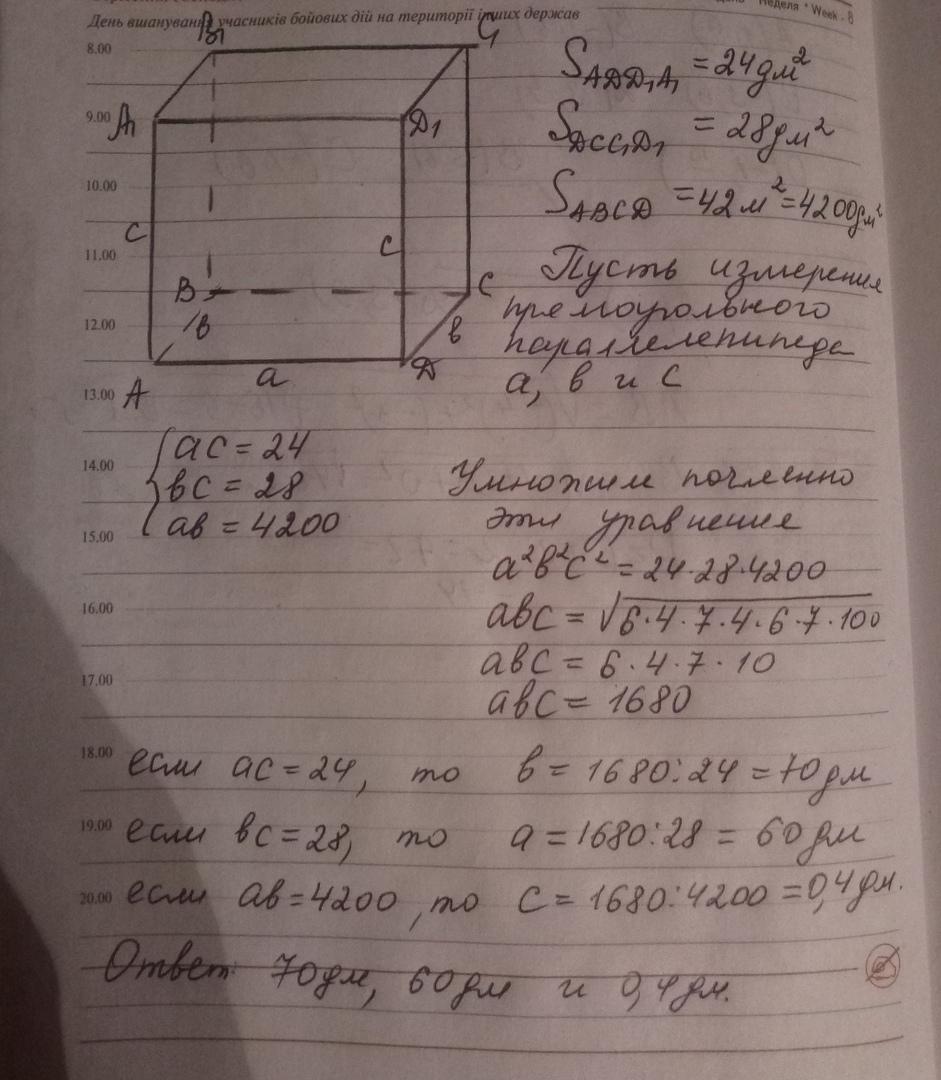 День вшанування учасників бойових дій на території інших держав
Неделя * Week - 8
8.00
9.00
10.00
11.00
12.00
13.00
14.00
15.00
16.00
17.00
18.00
19.00
20.00
B₁ C₁
A₁ D₁
c c
B C
в в
A a D
S_ADD₁A₁ = 24дм²
S_DCC₁D₁ = 28дм²
S_ABCD = 42м² = 4200дм²
Пусть измерения
прямоугольного
параллелепипеда
a, в и c
{ ac = 24
вc = 28
aв = 4200
Умножим почленно
эти уравнения
a²в²c² = 24·28·4200
aвc = √6·4·7·4·6·7·100
aвc = 6·4·7·10
aвc = 1680
если ac = 24, то в = 1680:24 = 70дм
если вc = 28, то a = 1680:28 = 60дм
если aв = 4200, то c = 1680:4200 = 0,4дм.
Ответ: 70дм, 60дм и 0,4дм.